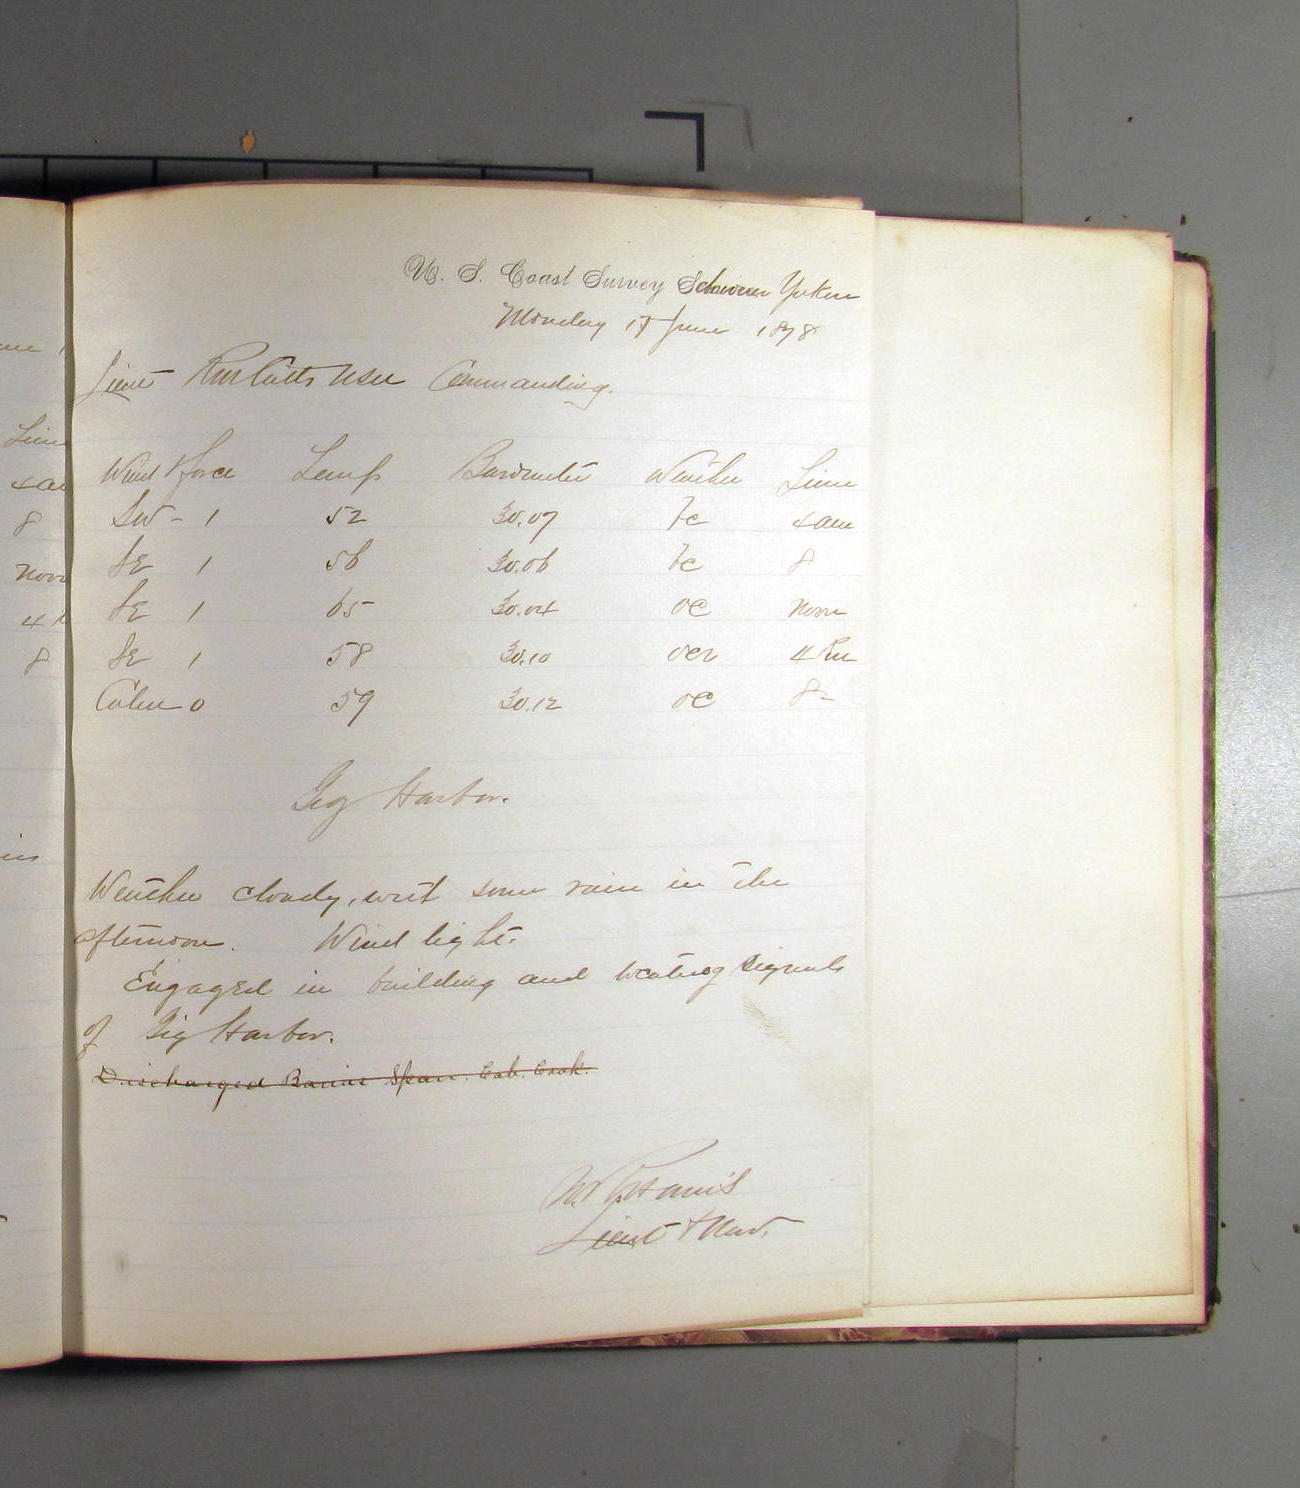 U. S. Coast Survey Schooner Yukon
Monday 17 June 1878
Lieut R M Cutts USN Commanding.
Wind & force Temp Barometer Weather Time
SW - 1 52 30.07 bc 4 am
SE 1 56 30.06 bc 8
SE 1 65 30.04 oc noon
SE 1 58 30.10 ocr 4 Pm
Calm 0 59 30.12 oc 8 -
Gig Harbor.
Weather cloudy, wit some rain in the
afternoon. Wind light.
Engaged in building and locating signals
of Gig Harbor.
Discharged Span. Cab. Cook.
Lieut & Nav.